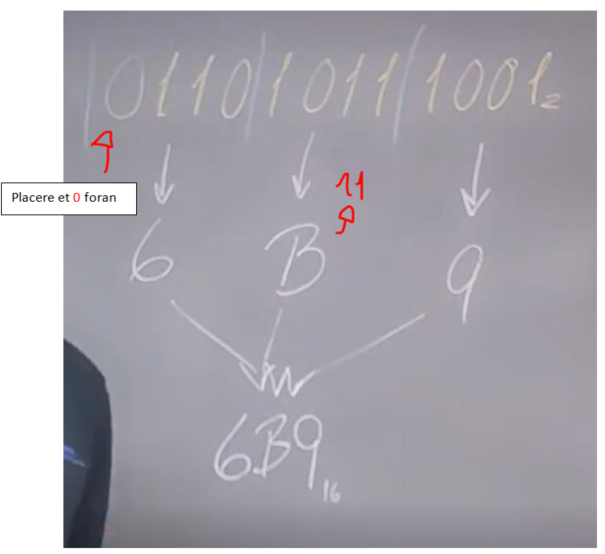 |0110|1011|1001₂
Placere et 0 foran
11
6 B 9
6B9₁₆